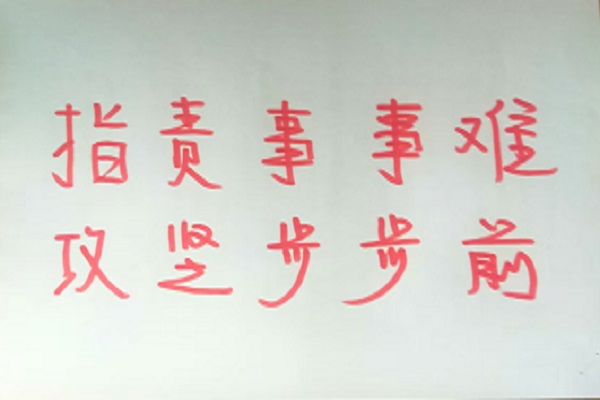 指责事事难
攻坚步步前